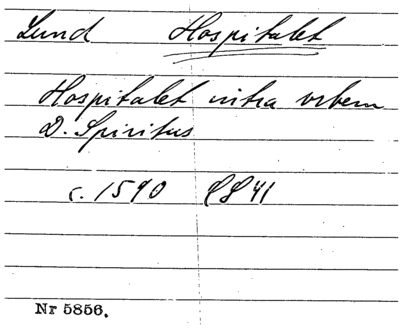 Lund Hospitalet
Hospitalet intra urbem
D. Spiritus
c. 1590 PS 41
Nr 5856.